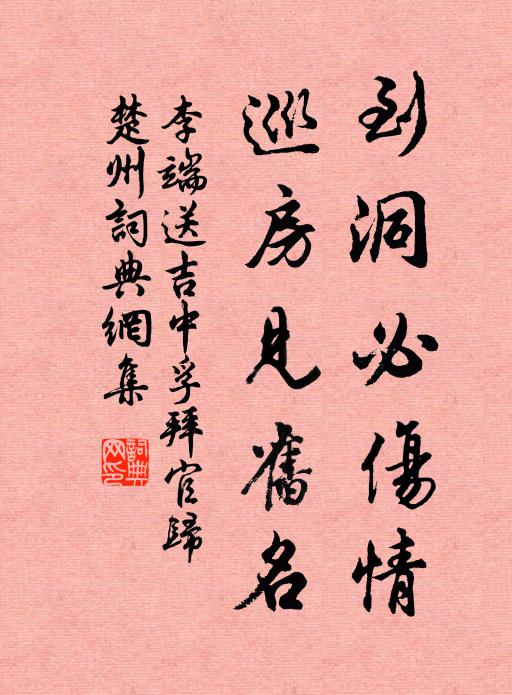 到洞必傷情
巡房見舊名
李端送吉中孚拜官歸
楚州詞典網集
詞典網印